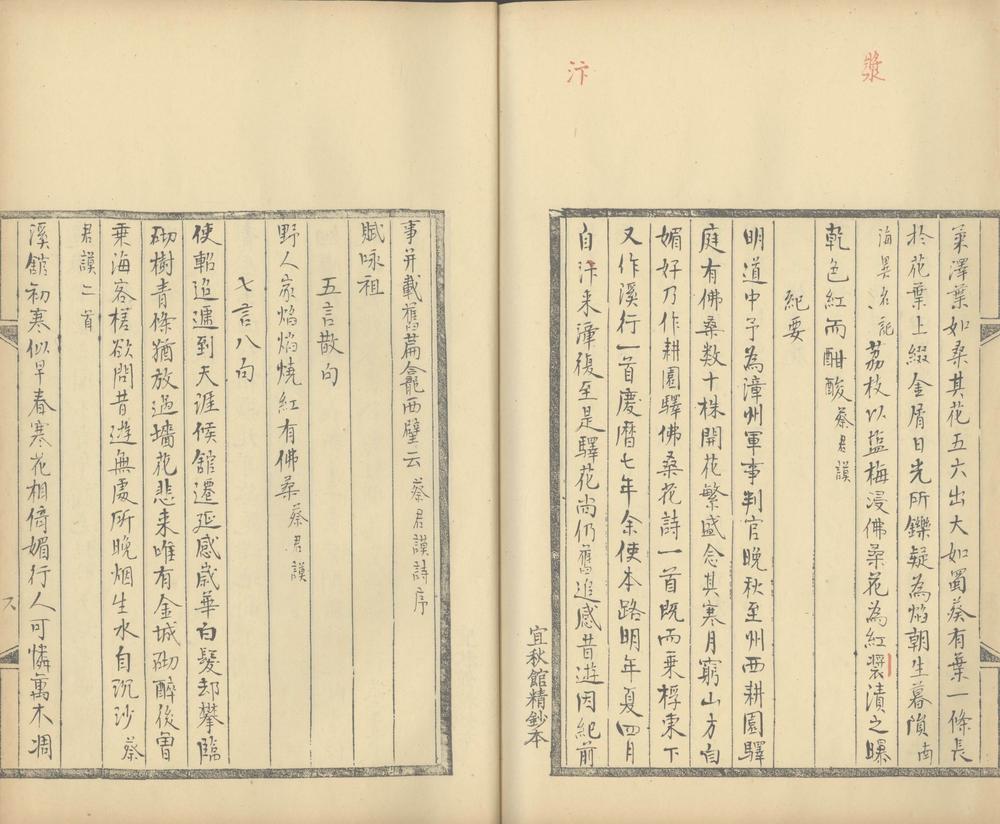 漿
汴
葉澤葉如桑其花五六出大如蜀葵有葉一條長
扵花葉上綴金屑日光所鑠疑為焰朝生暮隕南
海異名記　荔枝以塩梅浸佛桑花為紅漿漬之曝
乾色紅而酣酸蔡君謨
紀要
明道中予為漳州軍事判官晚秋至州西耕園驛
庭有佛桑数十株開花繁盛念其寒月窮山方自
媚好乃作耕園驛佛桑花詩一首既而乗桴東下
又作溪行一首慶曆七年余使本路明年夏四月
自汴来漳復至是驛花尚仍舊追感昔遊因紀前
宜秋館精鈔本
事并載舊篇龕西壁云蔡君謨詩序
賦咏祖
五言散句
野人家焰焰燒紅有佛桑蔡君謨
七言八句
使軺迢遞到天涯候舘遷延感歲華白髮却攀臨
砌樹青條猶放過墻花悲来唯有金城砌醉後曾
乗海客槎欲問昔遊無處所晚烟生水自沉沙蔡
君謨二首
溪舘初寒似早春寒花相倚媚行人可憐萬木凋